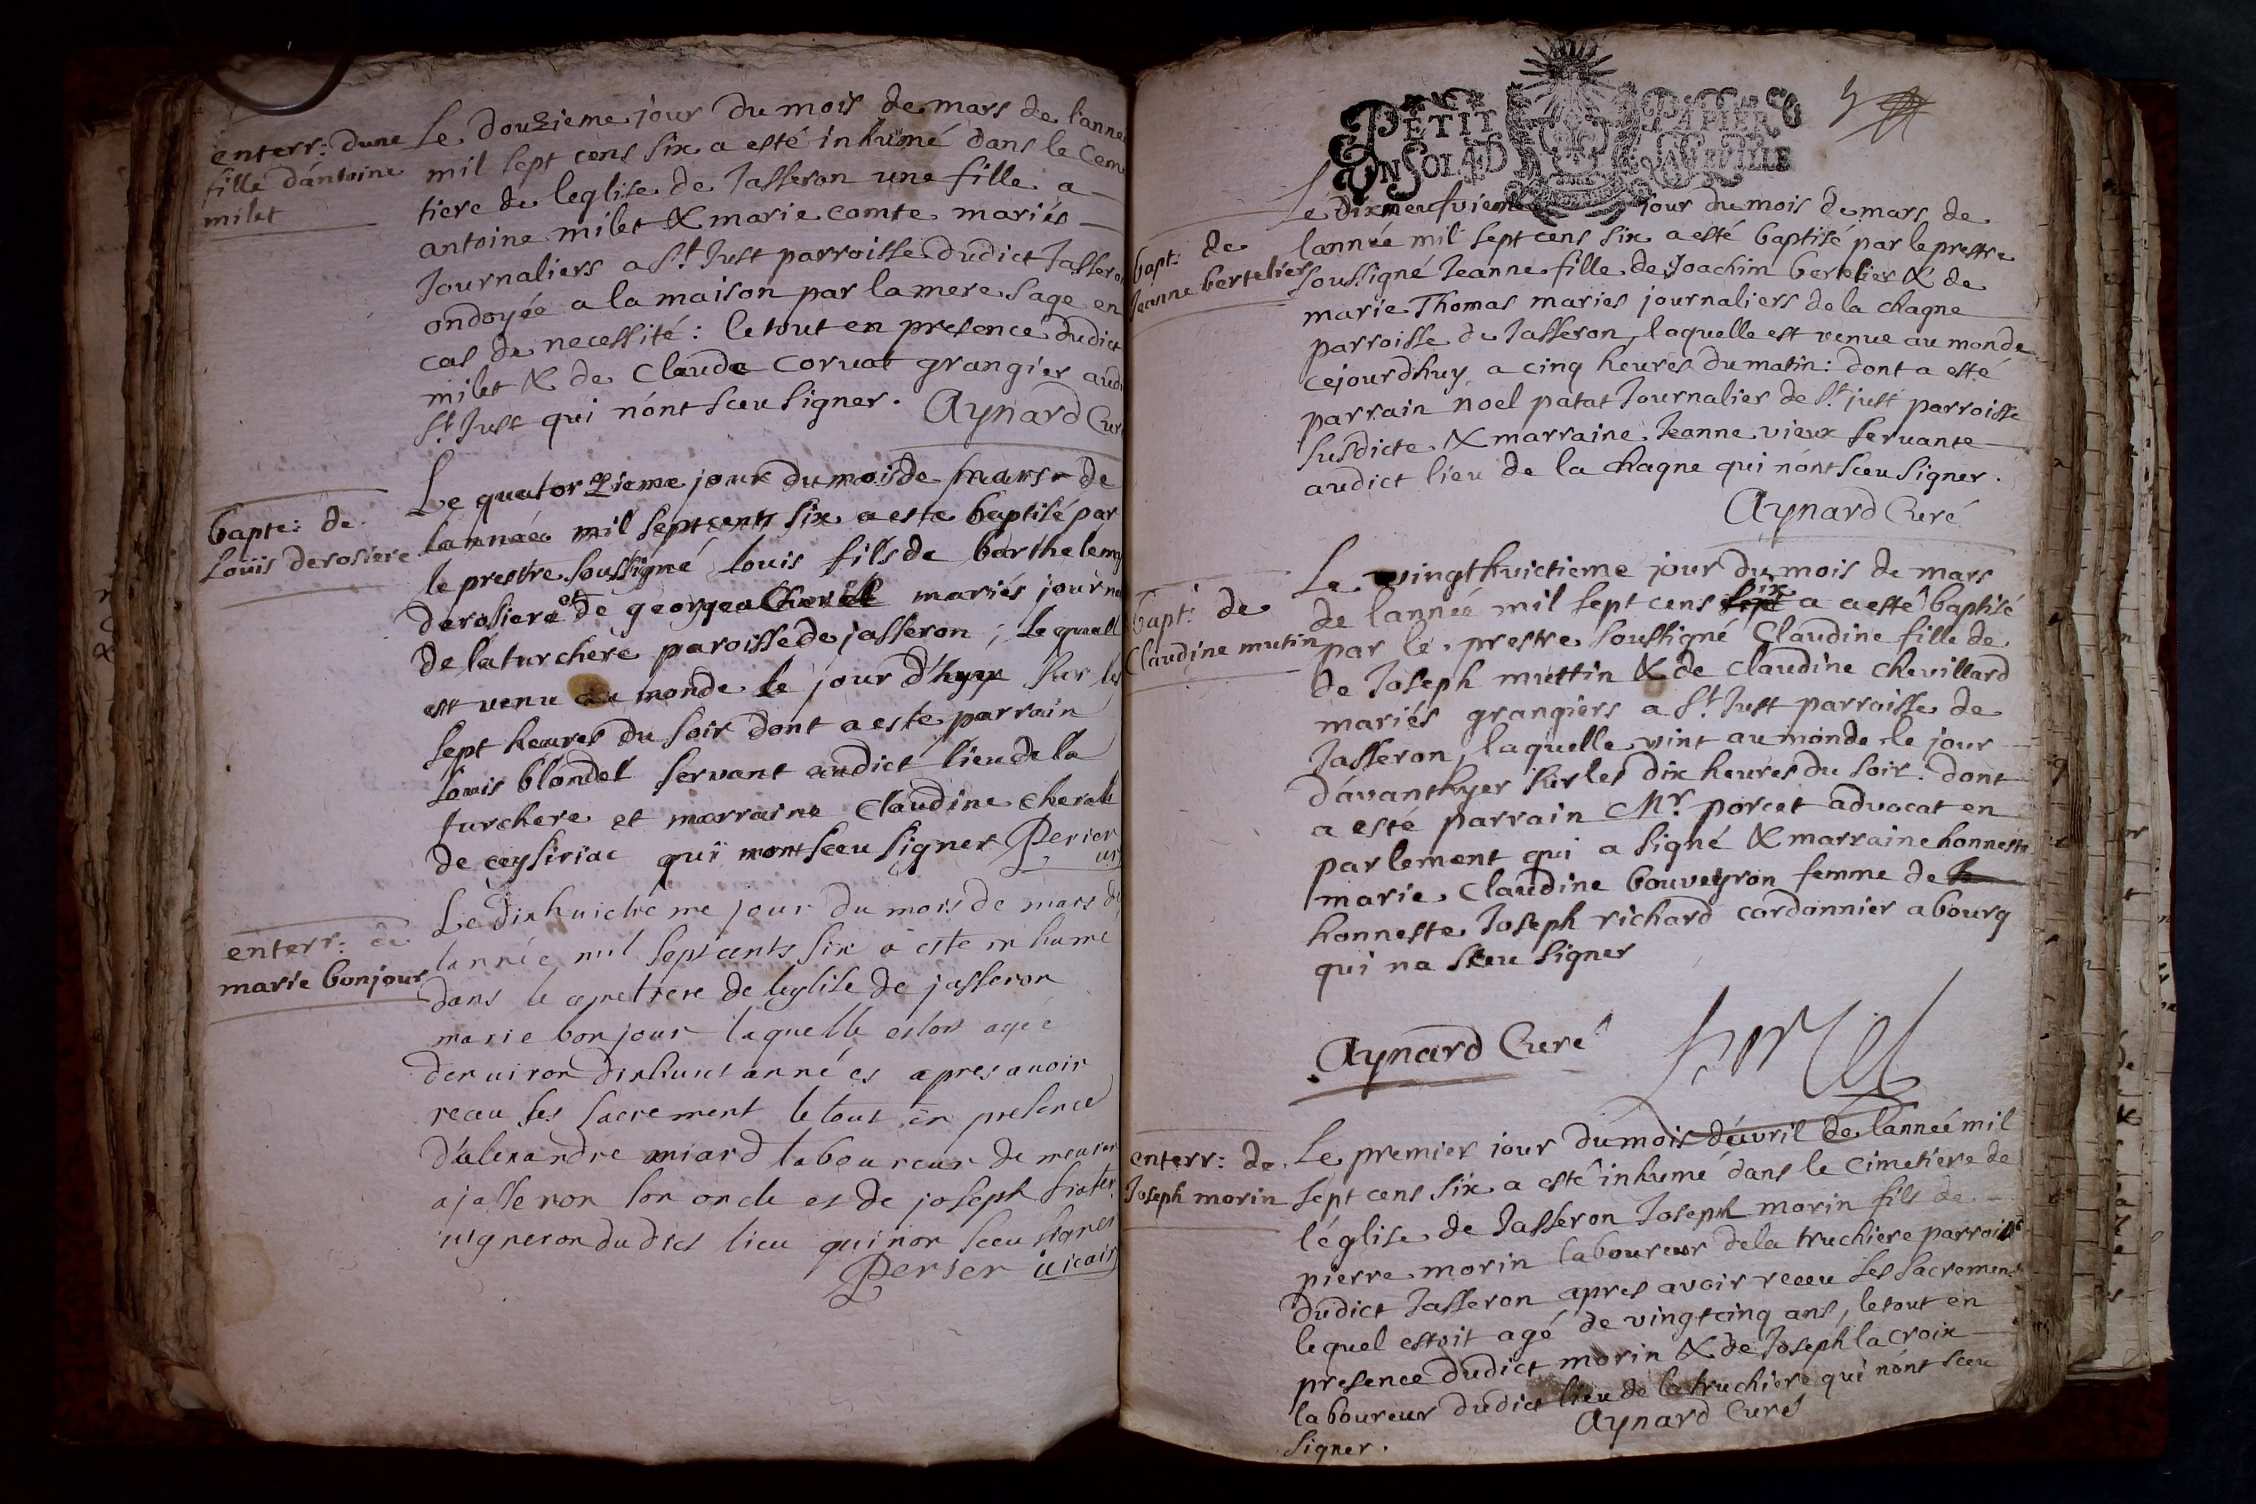 enterr: dune
fille dántoine
milet
Le douzieme jour du mois de mars de lanne
mil sept cens six a esté inhumé dans le Ceme
tiere de leglise de Jasseron une fille a
antoine milet & marie comte mariés
Journaliers a St Just parroisse dudict Jassero
ondoyée a la maison par la mere sage en
cas de necessité: le tout en presence dudict
milet & de Claude Corvat grangier aud
St Just qui nónt sceu signer. Aynard Curé
bapte: de
Louis derosiere
Le quatorzieme jour du mois de mars de
lannée mil sept cents six a este baptisé par
le prestre soussigné louis fils de barthelemy
derosiere et de georgea mariés journa
de laturchere paroisse de jasseron; lequell
est venu au monde le jour d'hyer sur les
sept heures du soir dont a este parrain
Louis blondel servant audict lieu de la
turchere et marraine Claudine
de ceysiriac qui nont sceu signer Perier
enterr: de
marie bonjour
Le Dixhuictieme jour du mois de mars de
lannée mil sept cents six a este inhume
dans le cemetiere de leglise de jasseron
marie bonjour laquelle estoit agée
denviron dixhuict années apres avoir
receu ses sacrement le tout en presence
d'alexandre miard laboureur de meurant
a jasseron son oncle et de joseph frater
vigneron dudict lieu qui non sceu signer
Perier vicair
PETIT PAPIER
UN SOL 4D LA FEUILLE
bapt: de
Jeanne bertelier
Le Dixneufvieme jour du mois de mars de
lannée mil sept cens six a esté baptisé par le prestre
soussigné Jeanne fille de Joachim bertelier & de
marie Thomas mariés journaliers de la chagne
parroisse de Jasseron, laquelle est venue au monde
cejourdhuy a cinq heures du matin: dont a esté
parrain noel patat Journalier de St just parroisse
susdicte & marraine Jeanne vieux servante
audict lieu de la chagne qui nónt sceu signer.
Aynard Curé
bapt: de
Claudine mutin
Le vingthuictieme jour du mois de mars
de lannée mil sept cens sept six a aesté baptisé
par le prestre soussigné Claudine fille de
de Joseph muttin & de Claudine chevillard
mariés grangiers a St Just parroisse de
Jasseron, laquelle vint au monde le jour
dávanthyer sur les dix heures du soir. dont
a esté parrain Mr. porcet advocat en
parlement qui a signé & marraine honneste
marie Claudine bouveyron femme de
honneste Joseph richard cordonnier a bourg
qui na sceu signer
Aynard Curé
enterr: de
Joseph morin
Le premier jour du mois dávril de lannéé mil
sept cens six a esté inhumé dans le Cimetiere de
léglise de Jasseron Joseph morin fils de
pierre morin laboureur dela truchiere parroisse
dudict Jasseron apres avoir receu ses sacremens
lequel estoit agé de vingtcinq ans, le tout en
presence dudict morin & de Joseph lacroix
laboureur dudict lieu de la truchiere qui nónt sceu
signer. Aynard Curé